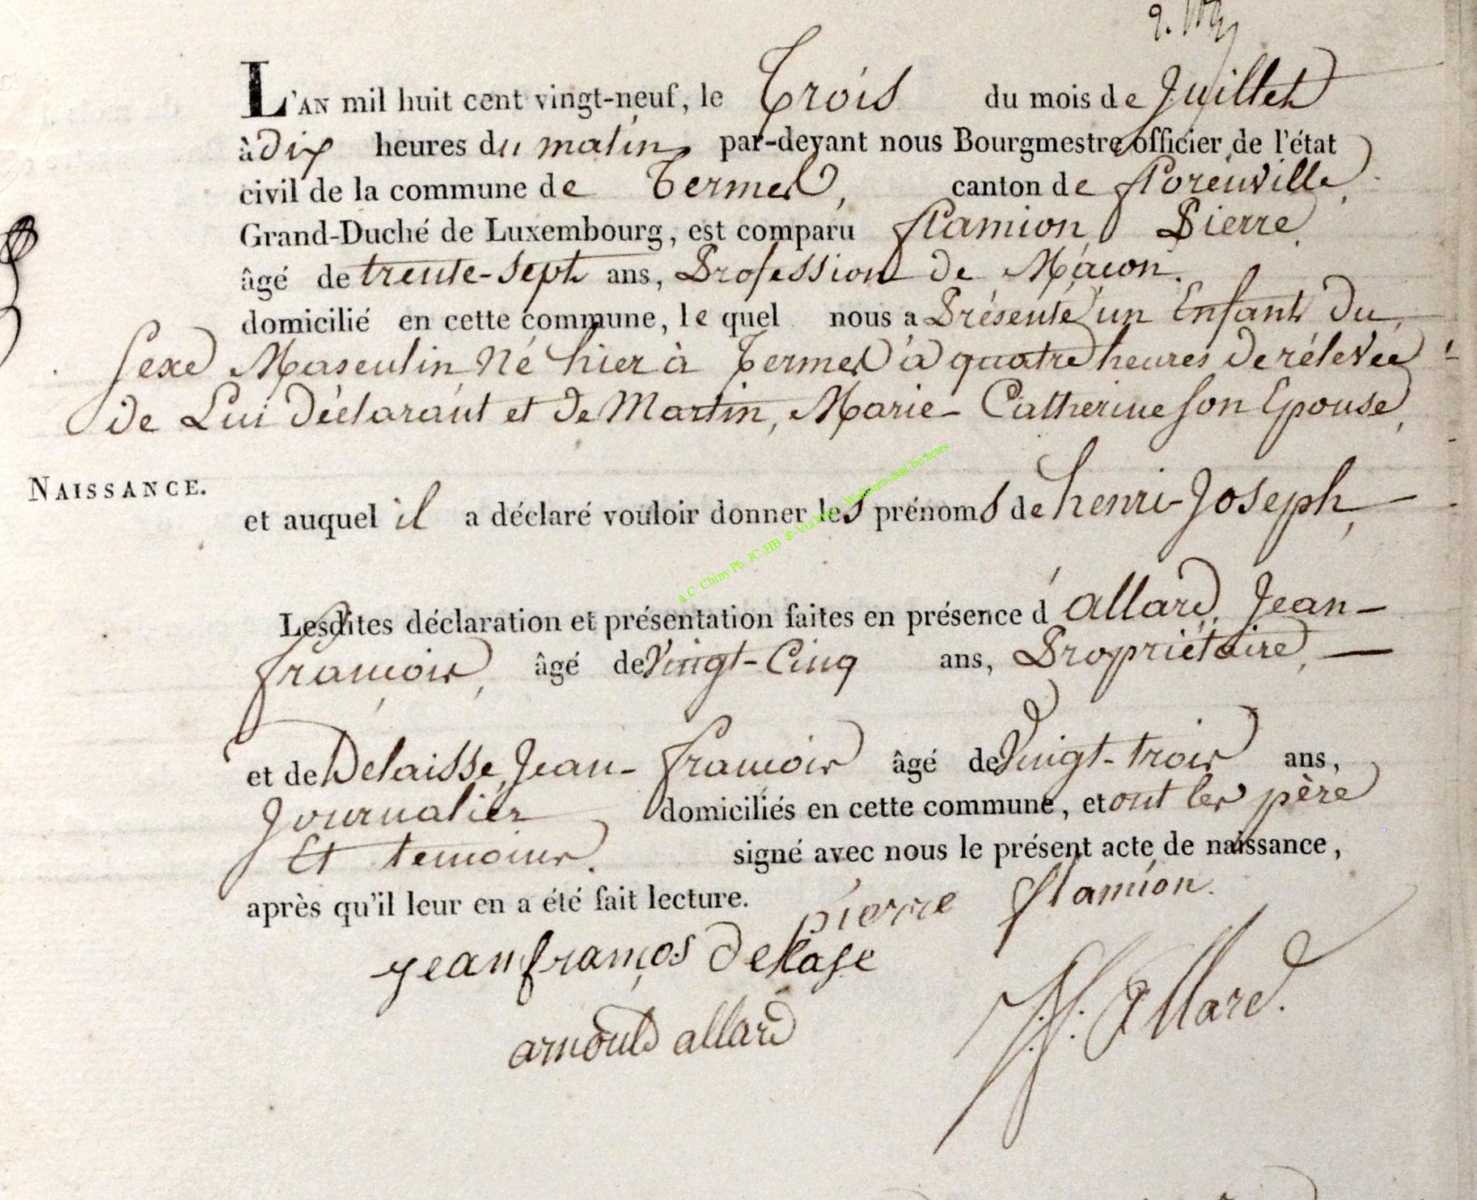 L'AN mil huit cent vingt-neuf, le Trois du mois de Juillet
à dix heures du matin, par-devant nous Bourgmestre officier de l'état
civil de la commune de Termes, canton de florenville,
Grand-Duché de Luxembourg, est comparu flamion Pierre,
âgé de trente-sept ans, Profession de Maçon.
domicilié en cette commune, le quel nous a Présenté un Enfant Du
Sexe Masculin Né hier à Termes à quatre heures de rélevée
de Lui déclarant et de Martin, Marie-Catherine son Epouse,
NAISSANCE.
et auquel il a déclaré vouloir donner les prénoms de henri-Joseph,
Lesdites déclaration et présentation faites en présence d'allard, Jean-
françois, âgé de Vingt-Cinq ans, Propriétaire,
et de Delaisse, Jean-françois âgé de Vingt-trois ans,
Journalier domiciliés en cette commune, et ont les père
Et temoins. signé avec nous le présent acte de naissance,
après qu'il leur en a été fait lecture.
pierre flamion.
jean franços Delase
J. f. Allard.
arnould allard
A.C. Chiny Ph. JC. HB &